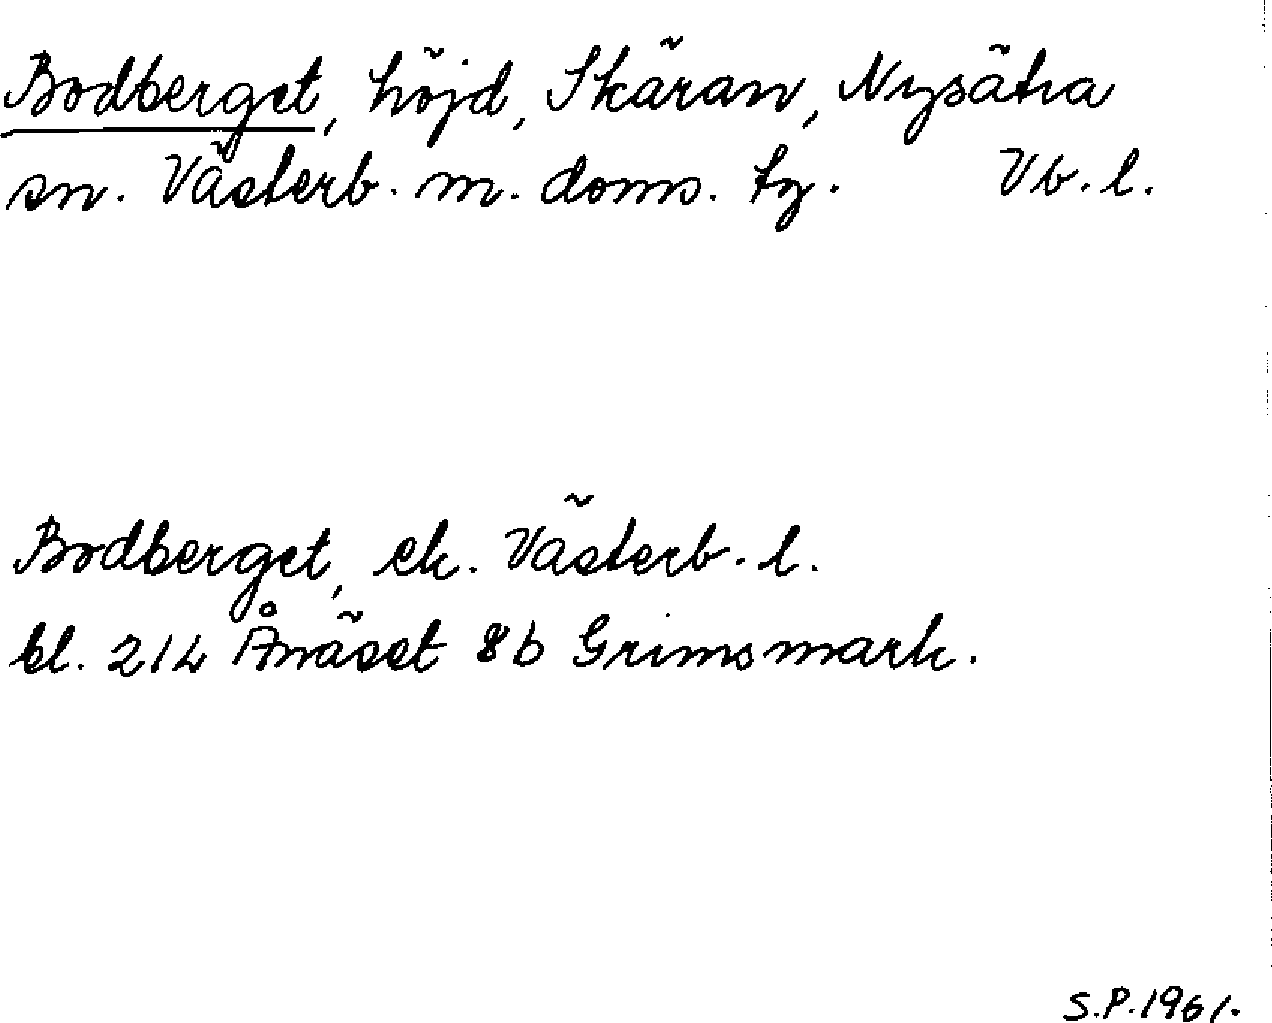 Bodberget, höjd, Skäran, Nysätra
sn. Västerb. m. doms. tg. Vb. l.
Bodberget, ek. Västerb. l.
bl. 214 Ånäset 8b Grimsmark.
S.P. 1961.